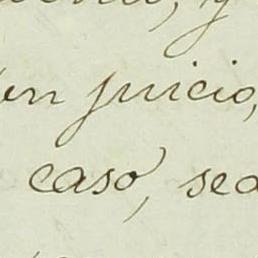 y
en juicio,
caso, sea